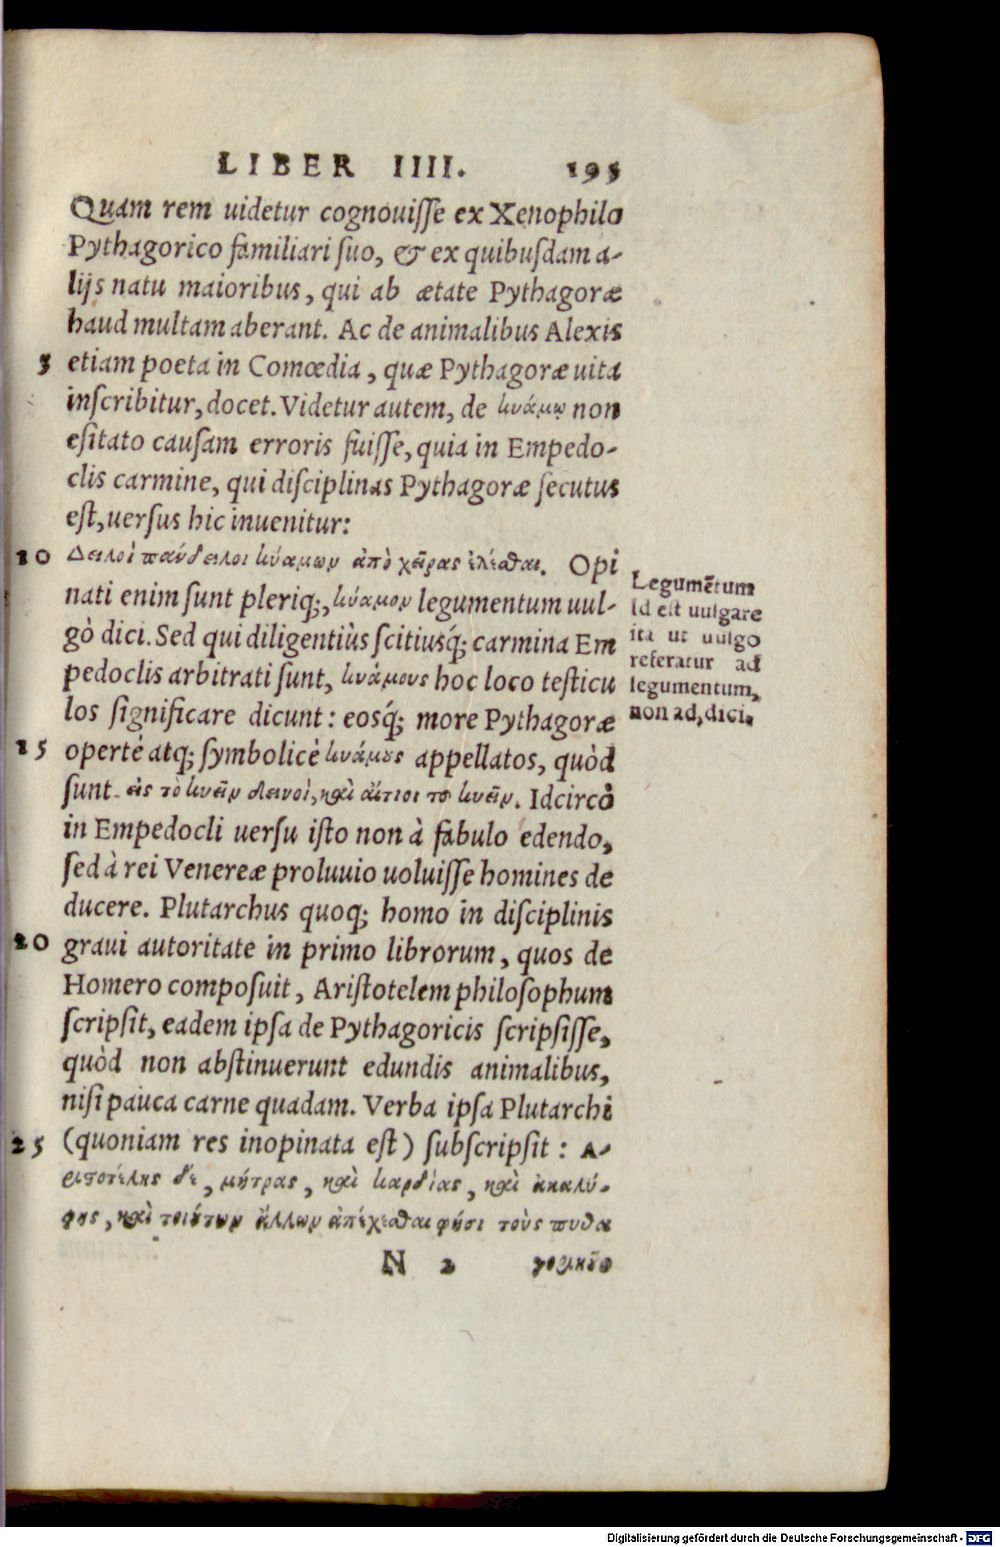 LIBER IIII. 195
Quam rem uidetur cognouisse ex Xenophilo
Pythagorico familiari suo, & ex quibusdam a-
lijs natu maioribus, qui ab ætate Pythagoræ
haud multam aberant. Ac de animalibus Alexis
5 etiam poeta in Comœdia, quæ Pythagoræ uita
inscribitur, docet. Videtur autem, de κυάμῳ non
esitato causam erroris fuisse, quia in Empedo-
clis carmine, qui disciplinas Pythagoræ secutus
est, uersus hic inuenitur:
10 Δειλοὶ πάνδειλοι κύαμων ἀπὸ χεῖρας ἑλέσθαι. Opi
nati enim sunt pleriq;, κύαμον legumentum uul-
gò dici. Sed qui diligentiùs scitiusq́; carmina Em
pedoclis arbitrati sunt, κυάμους hoc loco testicu
los significare dicunt: eosq́; more Pythagoræ
15 opertè atq; symbolicè κυάμους appellatos, quòd
sunt εἰς τὸ κυεῖν δεινοὶ, καὶ αἴτιοι τοῦ κυεῖν. Idcircò
in Empedocli uersu isto non à fabulo edendo,
sed à rei Venereæ proluuio uoluisse homines de
ducere. Plutarchus quoq; homo in disciplinis
20 graui autoritate in primo librorum, quos de
Homero composuit, Aristotelem philosophum
scripsit, eadem ipsa de Pythagoricis scripsisse,
quòd non abstinuerunt edundis animalibus,
nisi pauca carne quadam. Verba ipsa Plutarchi
25 (quoniam res inopinata est) subscripsit: Α-
ριστοτέλης δὲ, μήτρας, καὶ καρδίας, καὶ ἀκαλύ-
φης, καὶ τοιούτων ἄλλων ἀπέχεσθαι φήσι τοὺς πυθα
N 2 γορικοὺς
Legumētum
id est uulgare
ita ut uulgo
referatur ad
legumentum,
non ad, dici.
Digitalisierung gefördert durch die Deutsche Forschungsgemeinschaft - DFG